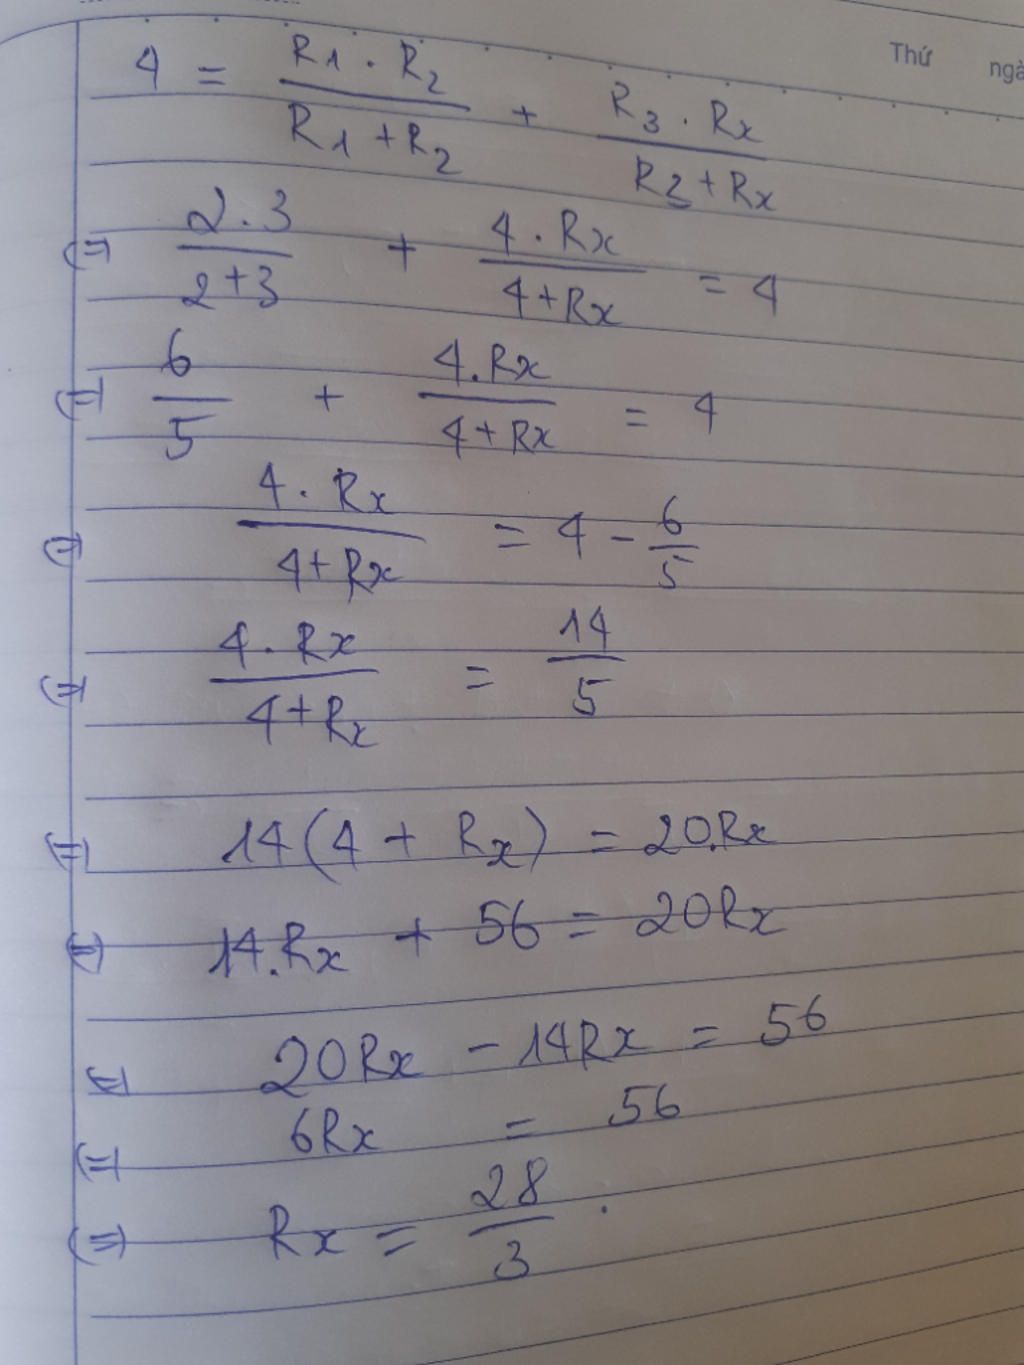 Thứ ngà
4 = \frac{R1 . R2}{R1 + R2} + \frac{R3 . Rx}{R3 + Rx}
(=) \frac{2 . 3}{2 + 3} + \frac{4 . Rx}{4 + Rx} = 4
(=) \frac{6}{5} + \frac{4 . Rx}{4 + Rx} = 4
(=) \frac{4 . Rx}{4 + Rx} = 4 - \frac{6}{5}
(=) \frac{4 . Rx}{4 + Rx} = \frac{14}{5}
(=) 14 (4 + Rx) = 20.Rx
(=) 14.Rx + 56 = 20Rx
(=) 20Rx - 14Rx = 56
(=) 6Rx = 56
(=) Rx = \frac{28}{3} .